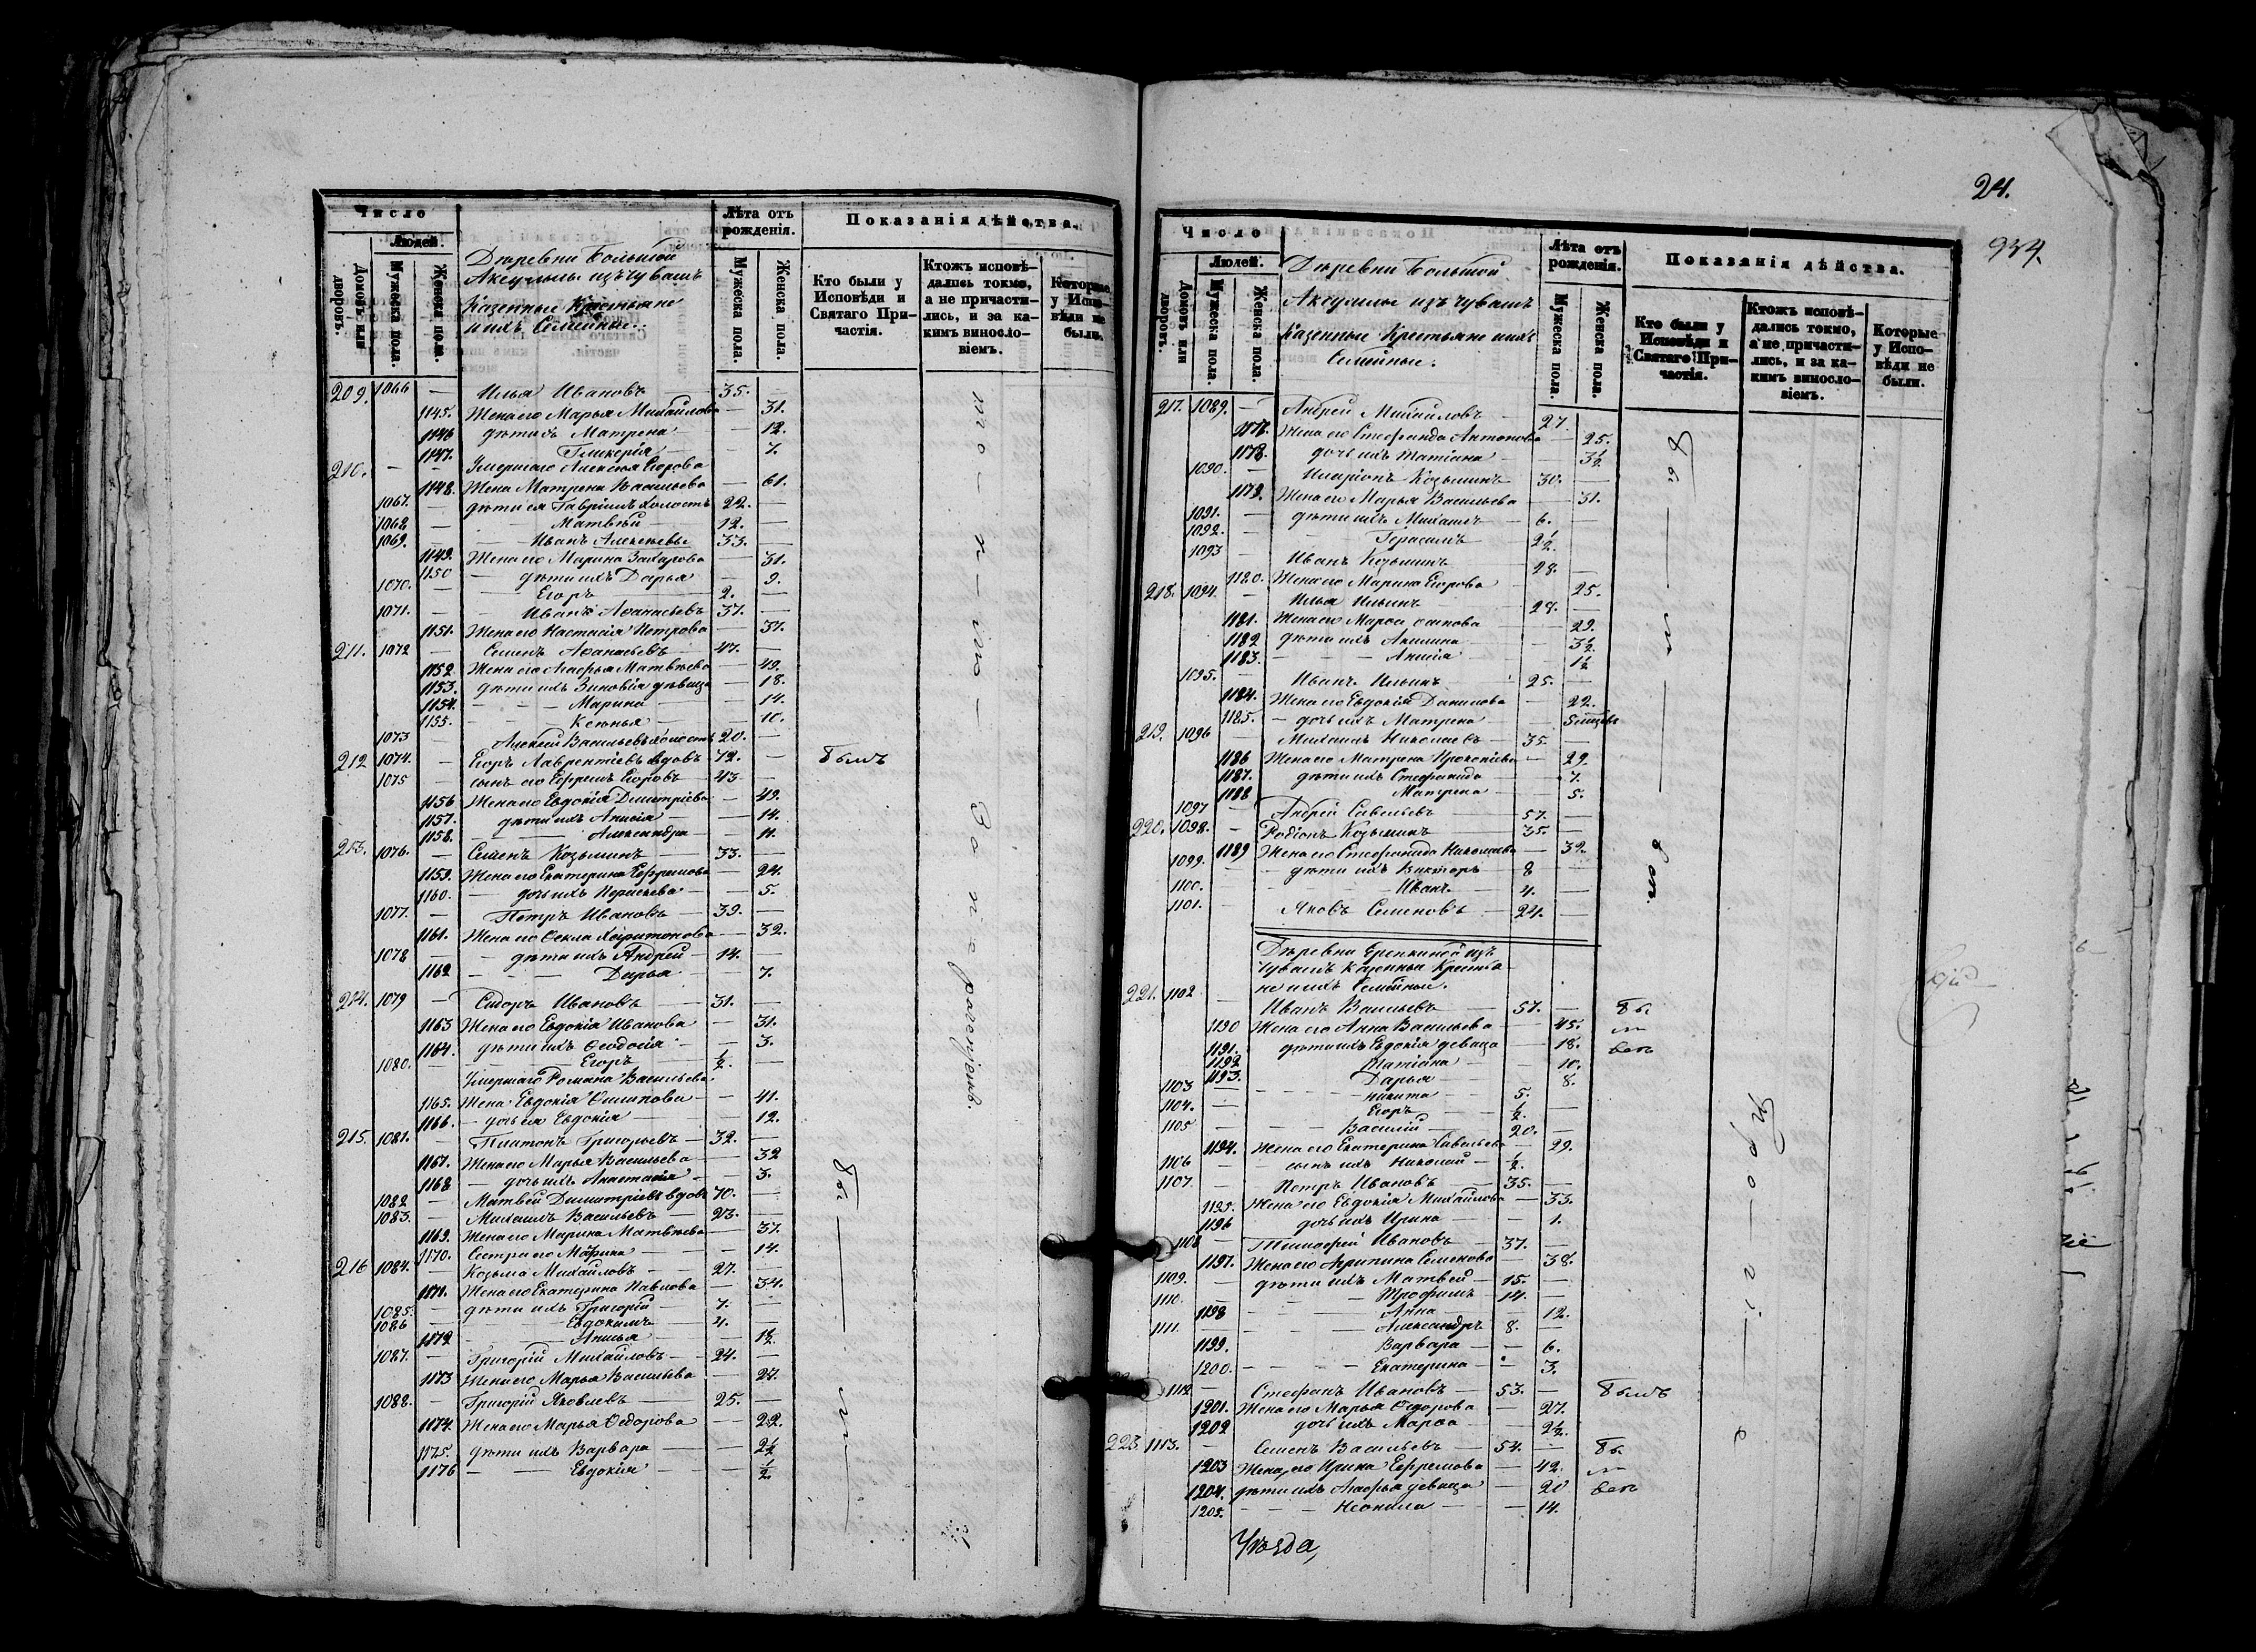 Число
Людей.
Домовъ или дворовъ.
Мужеска пола.
Женска пола.
Деревни Большой
Аксулы изъ чувашъ
Казенные Крестьяне
и ихъ Семейные.
Лѣта отъ рожденія.
Мужеска пола.
Женска пола.
Показанія дѣйства.
Кто были у Исповѣди и Святаго Причастія.
Ктожъ исповѣдались токмо, а не причастились, и за какимъ винословіемъ.
Которые у Исповѣди не были.
209. 1066 — Илья Ивановъ — 35.
1145. Жена его Марья Михайлова — 31.
1146 дѣти ихъ Матрена — 12.
1147. Гликерія — 7.
210. — — Умершаго Алексѣя Егорова
1148. Жена Матрена Васильева — 61.
1067. — дѣти ея Гавріилъ холостъ 22. —
1068 — Матвѣй — 12. —
1069. — Иванъ Алексѣевъ 33. —
1149. Жена его Марина Захарова — 31.
1150 — дѣти ихъ Дарья — 9.
1070. — Егоръ — 2. —
1071. — Иванъ Афанасьевъ 37. —
1151. Жена его Настасія Петрова — 37.
211. 1072 — Семенъ Афанасьевъ — 47. —
1152 Жена его Агафья Матвѣева — 49.
1153. дѣти ихъ Зиновія дѣвица — 18.
1154. — Марина — 14.
1155. — Ксенья — 10.
1073 Алексѣй Васильевъ холостъ 20. —
212 1074. — Егоръ Лаврентіевъ вдовъ 72. — Былъ
1075 сынъ его Ефремъ Егоровъ — 43 —
1156 Жена его Евдокія Димитріева — 49.
1157. дѣти ихъ Анисія — 14.
1158. — Александра — 11.
213. 1076. — Семенъ Козьминъ — 33. —
1159. Жена его Екатерина Ефремова — 24.
1160. — дочь ихъ Параскева — 5.
1077. — Петръ Ивановъ — 39. —
1161. Жена его Фекла Харитонова — 32.
1078 — дѣти ихъ Андрей — 14. —
1162 — Дарья — 7.
214. 1079 — Сидоръ Ивановъ — 31. —
1163 Жена его Евдокія Иванова — 31.
1164. дѣти ихъ Феодосія — 3.
1080. — Егоръ — ½. —
Умершаго Романа Васильева.
1165. Жена Евдокія Филипова — 41.
1166. — дочь ея Евдокія — 12.
215. 1081. — Платонъ Григорьевъ — 32. —
1167. Жена его Марья Васильева — 32
1168 — дочь ихъ Анастасія — 3.
1082 — Матвѣй Димитріевъ вдовъ 70. —
1083. — Михаилъ Васильевъ — 23. —
1169. Жена его Марина Матвѣева — 37.
1170. Сестра его Марина — 14.
216 1084. — Козьма Михайловъ — 27. —
1171. Жена его Екатерина Павлова — 34.
1085. — дѣти ихъ Григорій — 7. —
1086 — Евдокимъ — 4. —
1172 — Анисья — 1½
1087. — Григорій Михайловъ — 24. —
1173 Жена его Марья Васильева — 27.
1088. — Григорій Яковлевъ — 25. —
1174. Жена его Марья Федорова — 22.
1175. дѣти ихъ Варвара — 2½
1176 — Евдокія — ½
24.
934.
Число
Людей.
Домовъ или дворовъ.
Мужеска пола.
Женска пола.
Деревни Большой
Аксулы изъ чувашъ
Казенные Крестьяне и ихъ
Семейные.
Лѣта отъ рожденія.
Мужеска пола.
Женска пола.
Показанія дѣйства.
Кто были у Исповѣди и Святаго Причастія.
Ктожъ исповѣдались токмо, а не причастились, и за какимъ винословіемъ.
Которые у Исповѣди не были.
217. 1089. — Андрей Михайловъ — 27.
1177. Жена его Стефанида Антонова — 25.
1178. дочь ихъ Татіана — 3½
1090. — Иларіонъ Козьминъ — 30. —
1179. Жена его Марья Васильева — 31.
1091. — дѣти ихъ Михаилъ — 6. —
1092. — Герасимъ — 2½
1093 — Иванъ Козьминъ — 28. —
1180. Жена его Марина Егорова — 25.
218. 1094. — Илья Ильинъ — 28. —
1181. Жена его Марфа Осипова — 29.
1182 дѣти ихъ Акилина — 3½
1183. — Анисія — 1½
1095. — Иванъ Ильинъ — 25. —
1184. Жена его Евдокія Данилова — 22.
1185. — дочь ихъ Матрена — 5 мѣсяц.
219. 1096 — Михаилъ Николаевъ — 35 —
1186 Жена его Матрена Прокопіева — 29.
1187. дѣти ихъ Стефанида — 7.
1188 Матрена — 5.
1097 — Андрей Савельевъ — 57. —
220. 1098. — Родіонъ Козьминъ — 35. —
1189 Жена его Стефанида Николаева — 32.
1099. — дѣти ихъ Викторъ — 8 —
1100. — Иванъ — 4. —
1101. — Яковъ Семеновъ — 24. —
Деревни Ерепкиной изъ
Чувашъ Казенные Крестья-
не и ихъ Семейные.
221. 1102 — Иванъ Васильевъ — 57. — Бы
1190 Жена его Анна Васильева — 45. ли
1191. дѣти ихъ Евдокія девица — 18. всѣ
1192 Татіана — 10.
1193. Дарья — 8.
1103 — Никита — 5.
1104. — Егоръ — ½. —
1105 — Василій — 20. —
1194. Жена его Екатерина Савельева — 29.
1106 — сынъ ихъ Николай — ½.
1107. — Петръ Ивановъ — 35. —
1195. Жена его Евдокія Михайлова — 33.
1196 дочь ихъ Ирина — 1.
1108 — Тимофей Ивановъ — 37. —
1197. Жена его Агрипина Семенова — 38.
1109. — дѣти ихъ Матвей — 15. —
1110. — Трофимъ — 14. —
1198 — Анна — 12.
1111. — Александръ 8. —
1199. Варвара — 6.
1200. — Екатерина — 3.
1112 — Стефанъ Ивановъ — 53. — Былъ
1201. Жена его Марья Федорова — 27.
1202 дочь ихъ Марфа — 2½.
223 1113. — Семенъ Васильевъ — 54. — Бы
1203 Жена его Ирина Ефремова — 42. ли
1204. дѣти ихъ Агафья девица — 20 всѣ
1205. — Неонила — 14.
Уѣзда,